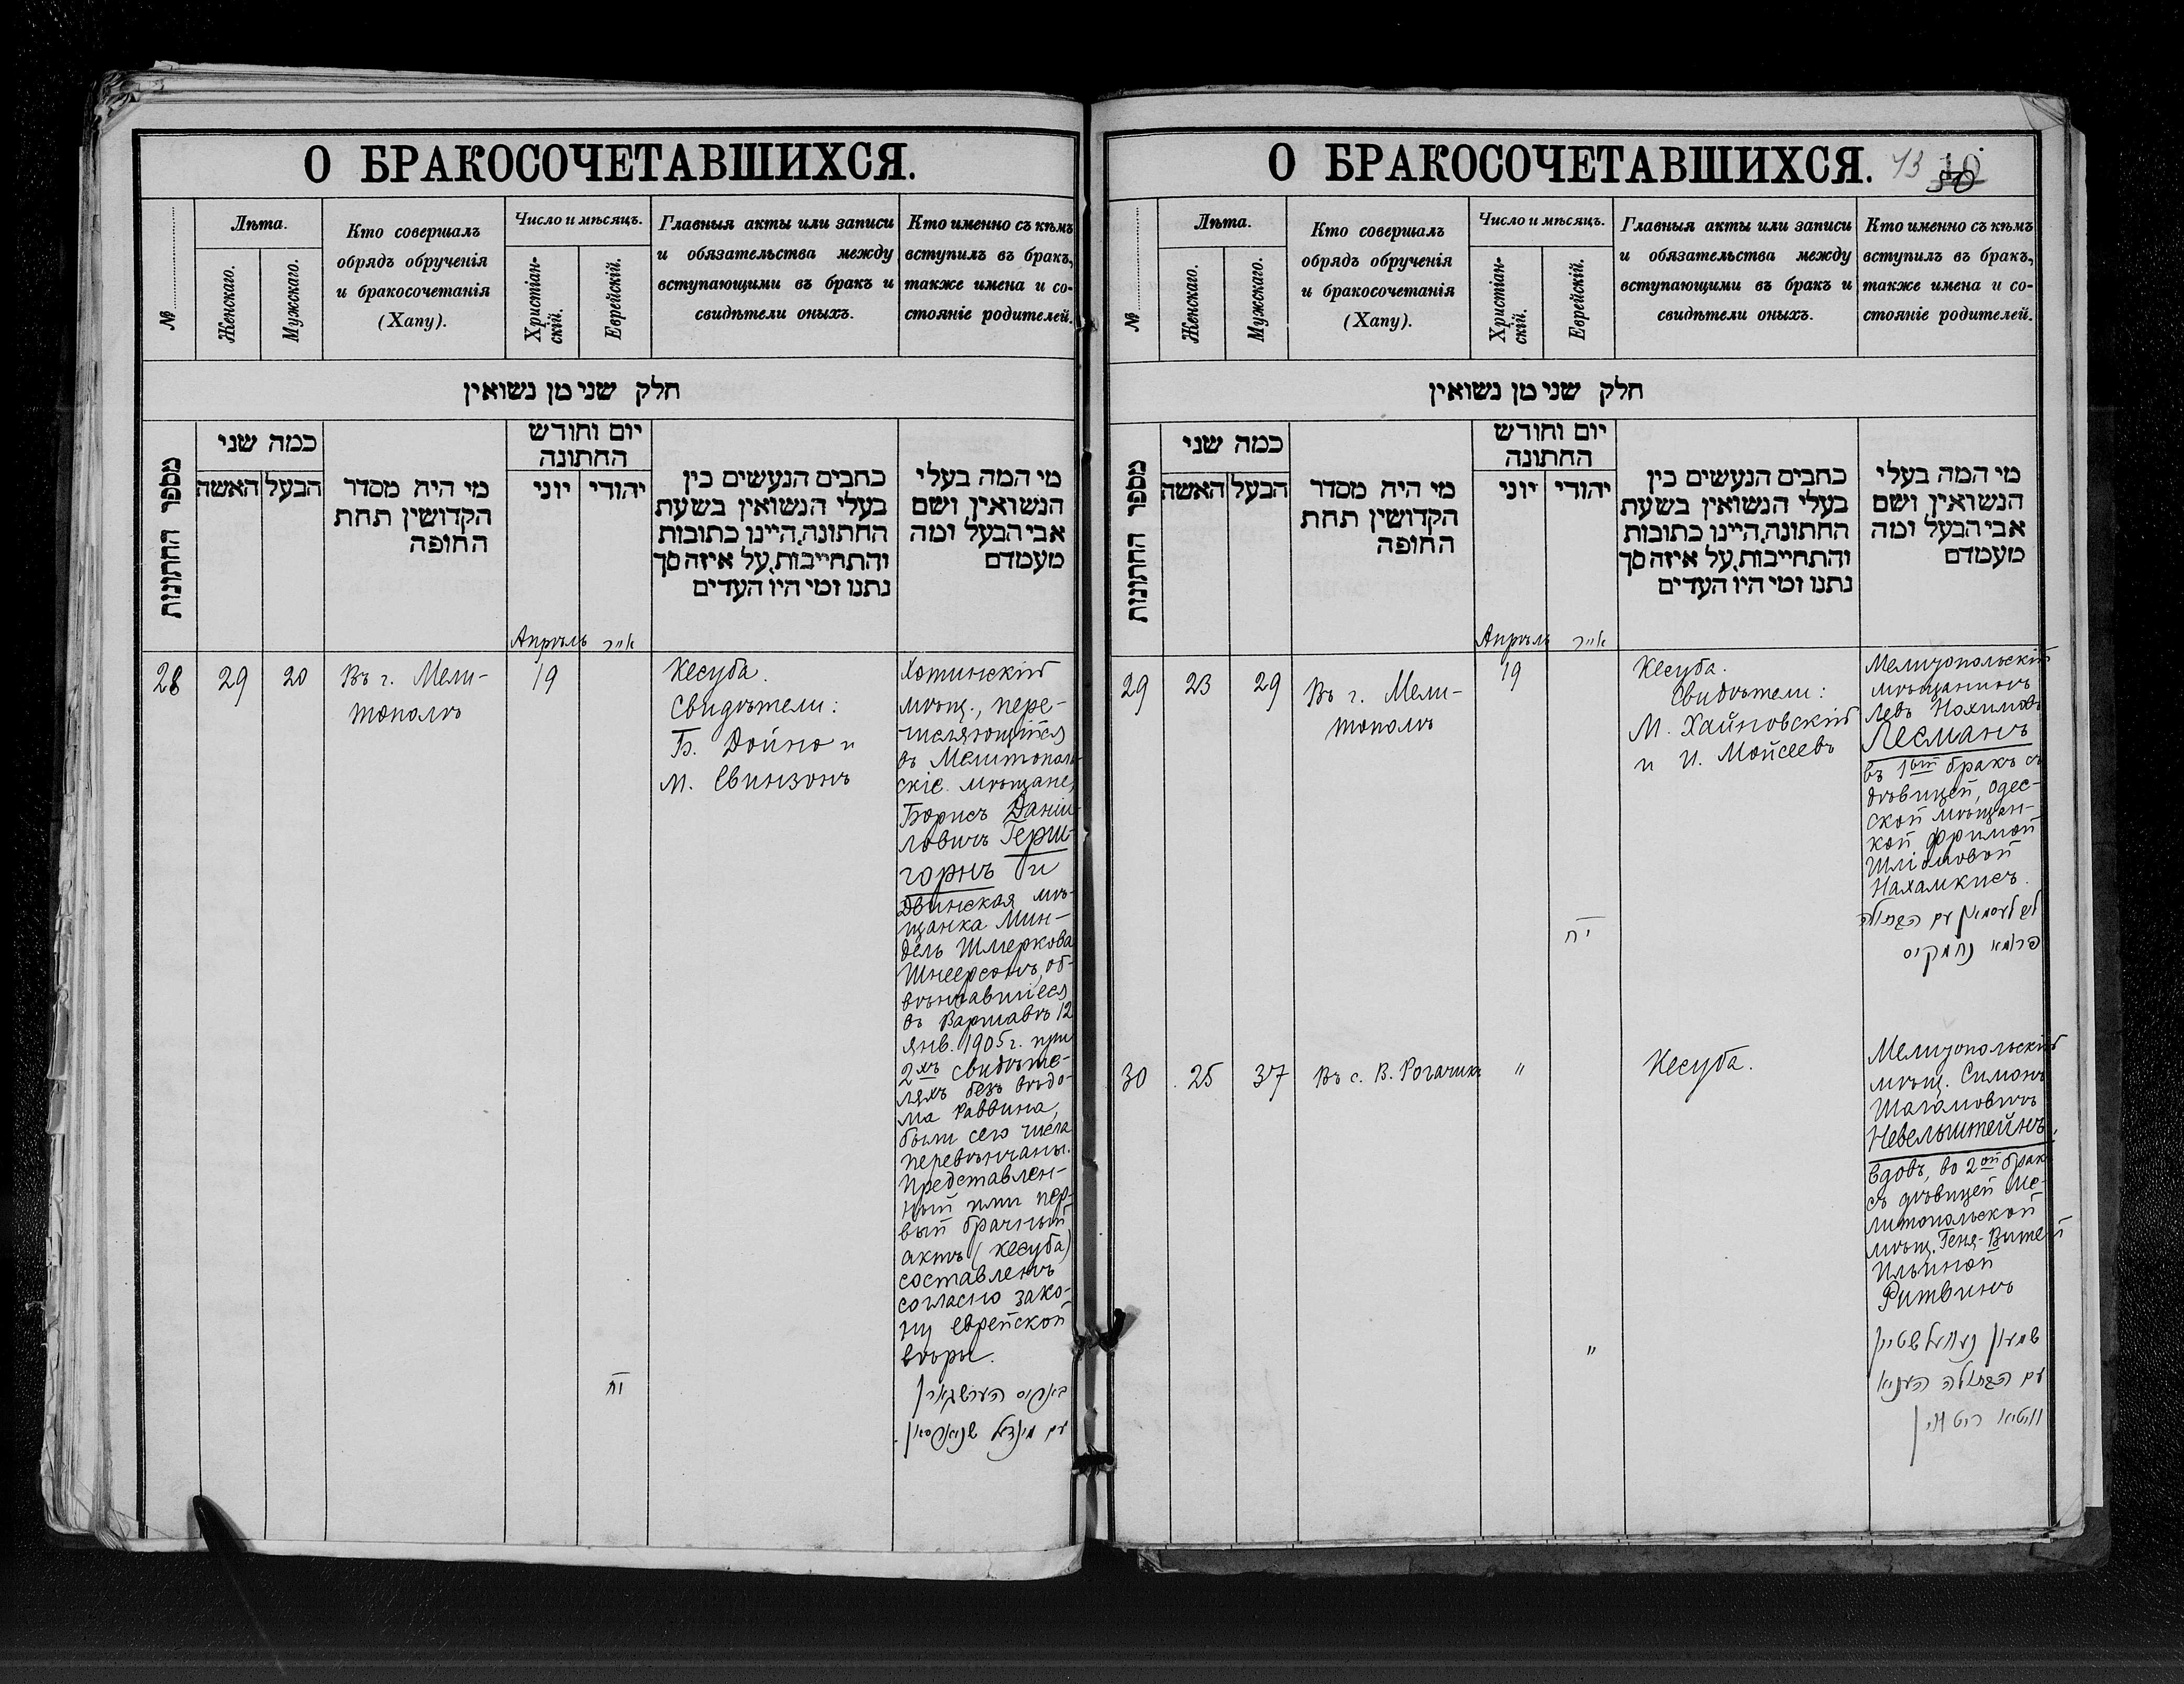 О БРАКОСОЧЕТАВШИХСЯ.
№
Лѣта.
Женскаго.
Мужскаго.
Кто совершалъ
обрядъ обрученія
и бракосочетанія
(Хапу).
Число и мѣсяцъ.
Христіан-
скій.
Еврейскій.
Главныя акты или записи
и обязательства между
вступающими въ бракъ и
свидѣтели оныхъ.
Кто именно съ кѣмъ
вступилъ въ бракъ,
также имена и со-
стояніе родителей.
חלק שני מן נשואין
מספר החתונות
כמה שני
האשה
הבעל
מי היה מסדר
הקדושין תחת
החופה
יום וחודש
החתונה
יוני
יהודי
כתבים הנעשים בין
בעלי הנשואין בשעת
החתונה, היינו כתובות
והתחייבות, על איזה סך
נתנו ומי היו העדים
מי המה בעלי
הנשואין ושם
אבי הבעל ומה
מעמדם
Апрѣль
אייר
28
29
20
Въ г. Мели-
тополѣ
19
יח
Кесуба.
Свидѣтели:
Б. Дойно и
М. Свинзонъ
Хотинскій
мѣщ., пере-
числяющійся
въ Мелитополь-
скіе мѣщане,
Борисъ Даніи-
ловичъ Герш-
горнъ и
Двинская мѣ-
щанка Мин-
дель Шмеркова
Шнеерсонъ, об-
вѣнчавшіеся
въ Варшавѣ 12
янв. 1905 г. при
2хъ свидѣте-
ляхъ безъ вѣдо-
ма раввина,
были сего числа
перевѣнчаны.
Представлен-
ный ими пер-
вый брачный
актъ (кесуба)
составленъ
согласно зако-
ну еврейской
вѣры.
באריס הערשגארן
עם מינדל שניאורסאן
О БРАКОСОЧЕТАВШИХСЯ.
43
50
№
Лѣта.
Женскаго.
Мужскаго.
Кто совершалъ
обрядъ обрученія
и бракосочетанія
(Хапу).
Число и мѣсяцъ.
Христіан-
скій.
Еврейскій.
Главныя акты или записи
и обязательства между
вступающими въ бракъ и
свидѣтели оныхъ.
Кто именно съ кѣмъ
вступилъ въ бракъ,
также имена и со-
стояніе родителей.
חלק שני מן נשואין
מספר החתונות
כמה שני
האשה
הבעל
מי היה מסדר
הקדושין תחת
החופה
יום וחודש
החתונה
יוני
יהודי
כתבים הנעשים בין
בעלי הנשואין בשעת
החתונה, היינו כתובות
והתחייבות, על איזה סך
נתנו ומי היו העדים
מי המה בעלי
הנשואין ושם
אבי הבעל ומה
מעמדם
Апрѣль
אייר
29
23
29
Въ г. Мели-
тополѣ
19
יח
Кесуба.
Свидѣтели:
М. Хайновскій
и И. Мойсеевъ
Мелитопольскій
мѣщанинъ
Левъ Нохимовъ
Лесманъ
въ 1ый бракъ съ
дѣвицей, одес-
ской мѣщан-
кой Фримой
Шліомовой
Нахамкисъ.
עם הבתולה
פרומא נחמקיס
30
25
37
Въ с. В. Рогачикѣ
"
"
Кесуба.
Мелитопольскій
мѣщ. Симонъ
Невельштейнъ,
вдовъ, во 2ой бракъ
съ дѣвицей Ме-
литопольской
мѣщ. Геня-Витей
Ильиной
Ритвинъ
עם הבתולה העניא
וויטיא ריטווין